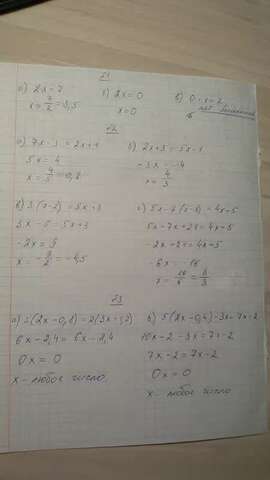 №1
а) 2x = 7 б) 2x = 0 в) 0 · x = 2
x = 7/2 = 3,5 x = 0 нет решений
№2
а) 7x - 3 = 2x + 1 б) 2x + 3 = 5x - 1
5x = 4 -3x = -4
x = 4/5 = 0,8 x = 4/3
в) 3(x-2) = 5x + 3 г) 5x - 7(x-3) = 4x + 5
3x - 6 = 5x + 3 5x - 7x + 21 = 4x + 5
-2x = 9 -2x + 21 = 4x + 5
x = -9/2 = -4,5 -6x = -16
x = 16/6 = 8/3
№3
а) 3(2x - 0,8) = 2(3x - 1,2) б) 5(2x - 0,4) - 3x = 7x - 2
6x - 2,4 = 6x - 2,4 10x - 2 - 3x = 7x - 2
0x = 0 7x - 2 = 7x - 2
x - любое число 0x = 0
x - любое число